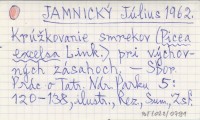 JAMNICKÝ Július 1962.
Krúžkovanie smrekov (Picea
excelsa Link.) pri výchov-
ných zásahoch, — Sbor.
Prác o Tatr. Nár. Parku 5:
120-138, ilustr., Rez, Sum, Zsf.